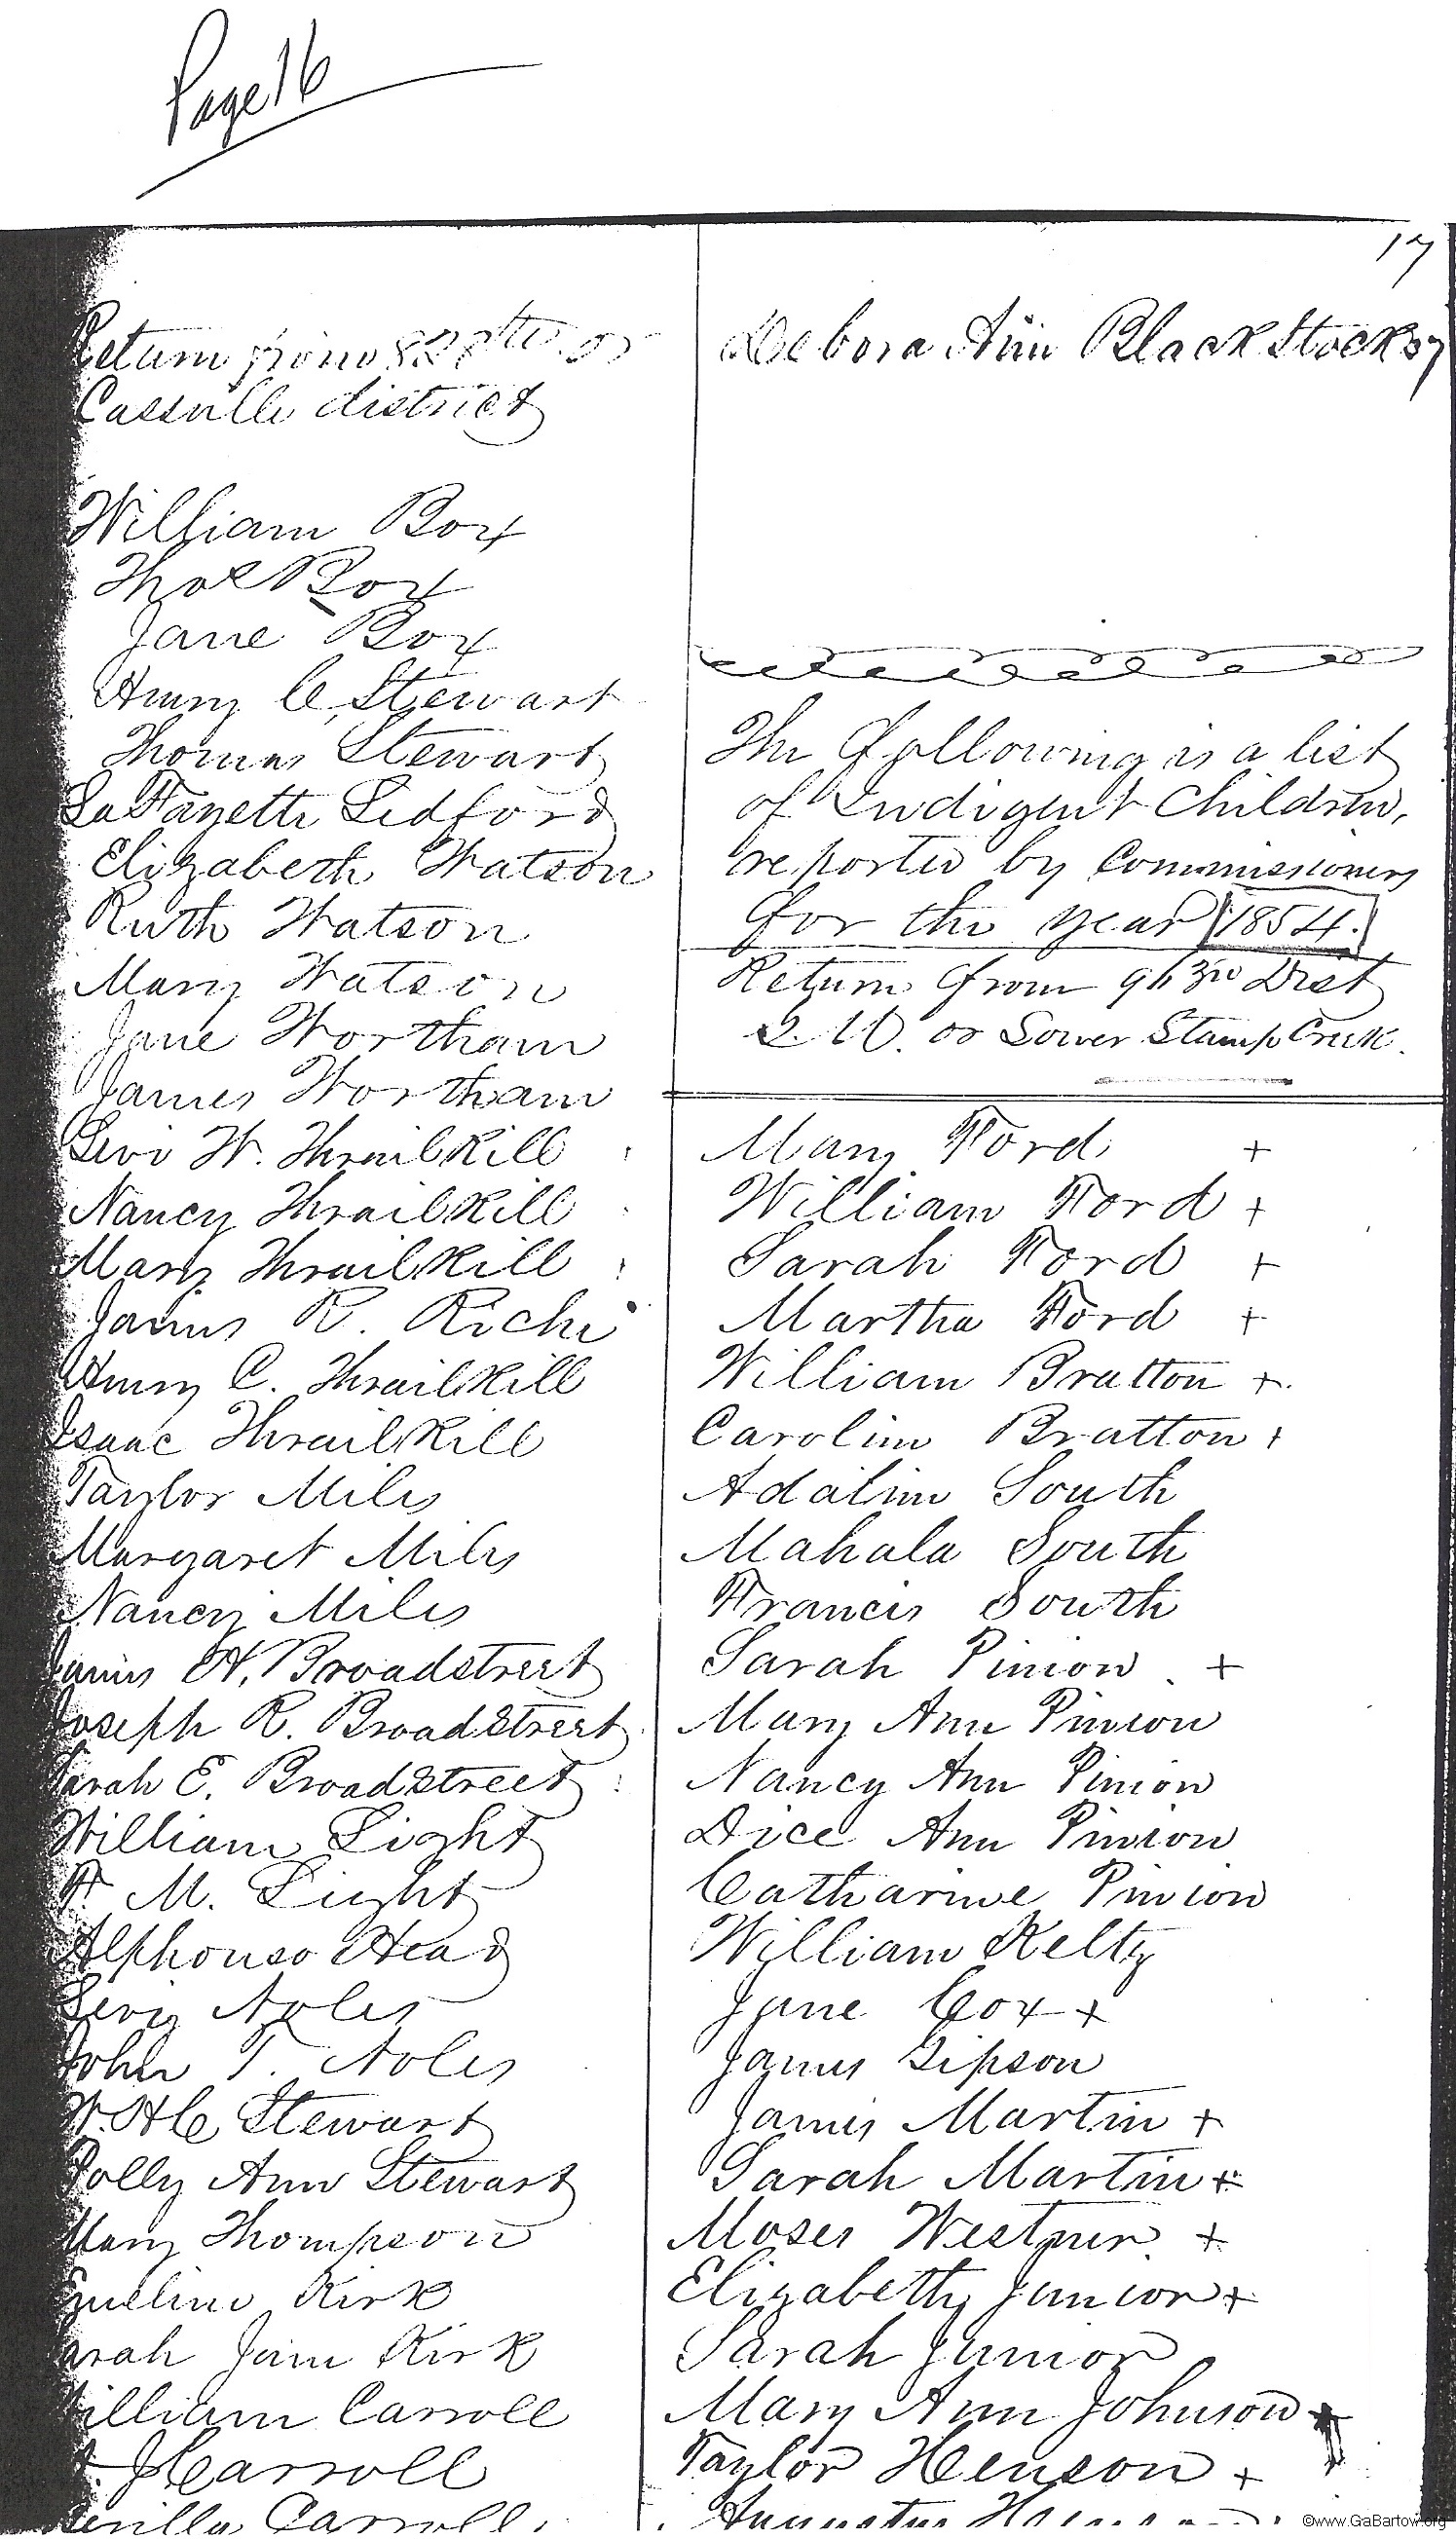 Page 16
17
Return from 82 or
Cassville district
William Box
Thos Box
Jane Box
Henry C. Stewart
Thomas Stewart
LaFayette Ledford
Elizabeth Watson
Ruth Watson
Mary Watson
Jane Wortham
James Wortham
Levi W. Thrailkill
Nancy Thrailkill
Mary Thrailkill
James R. Richi
Henry C. Thrailkill
Isaac Thrailkill
Taylor Miles
Margaret Miles
Nancy Miles
James H. Broadstreet
Joseph R. Broadstreet
Sarah E. Broadstreet
William Light
F. M. Light
Alphonso Head
Levy Noles
John T. Noles
W. H C Stewart
Polly Ann Stewart
Mary Thompson
Emeline Kirk
Sarah Jane Kirk
William Carroll
J Carroll
Carroll
Debora Ann BlackStocks
The following is a list
of Indigent Children,
reported by Commissioners
for the year 1854.
Return from 963rd Dist
G. M. or Lower Stamp Creek.
Mary Ford +
William Ford +
Sarah Ford +
Martha Ford +
William Bratton +
Caroline Bratton +
Adaline South
Mahala South
Francis South
Sarah Pinion +
Mary Ann Pinion
Nancy Ann Pinion
Dice Ann Pinion
Catharine Pinion
William Kelty
Jane Cox +
James Gipson
James Martin +
Sarah Martin +
Moses +
Elizabeth Junior +
Sarah Junior
Mary Ann Johnson +
Taylor Henson +
©www.GaBartow.org